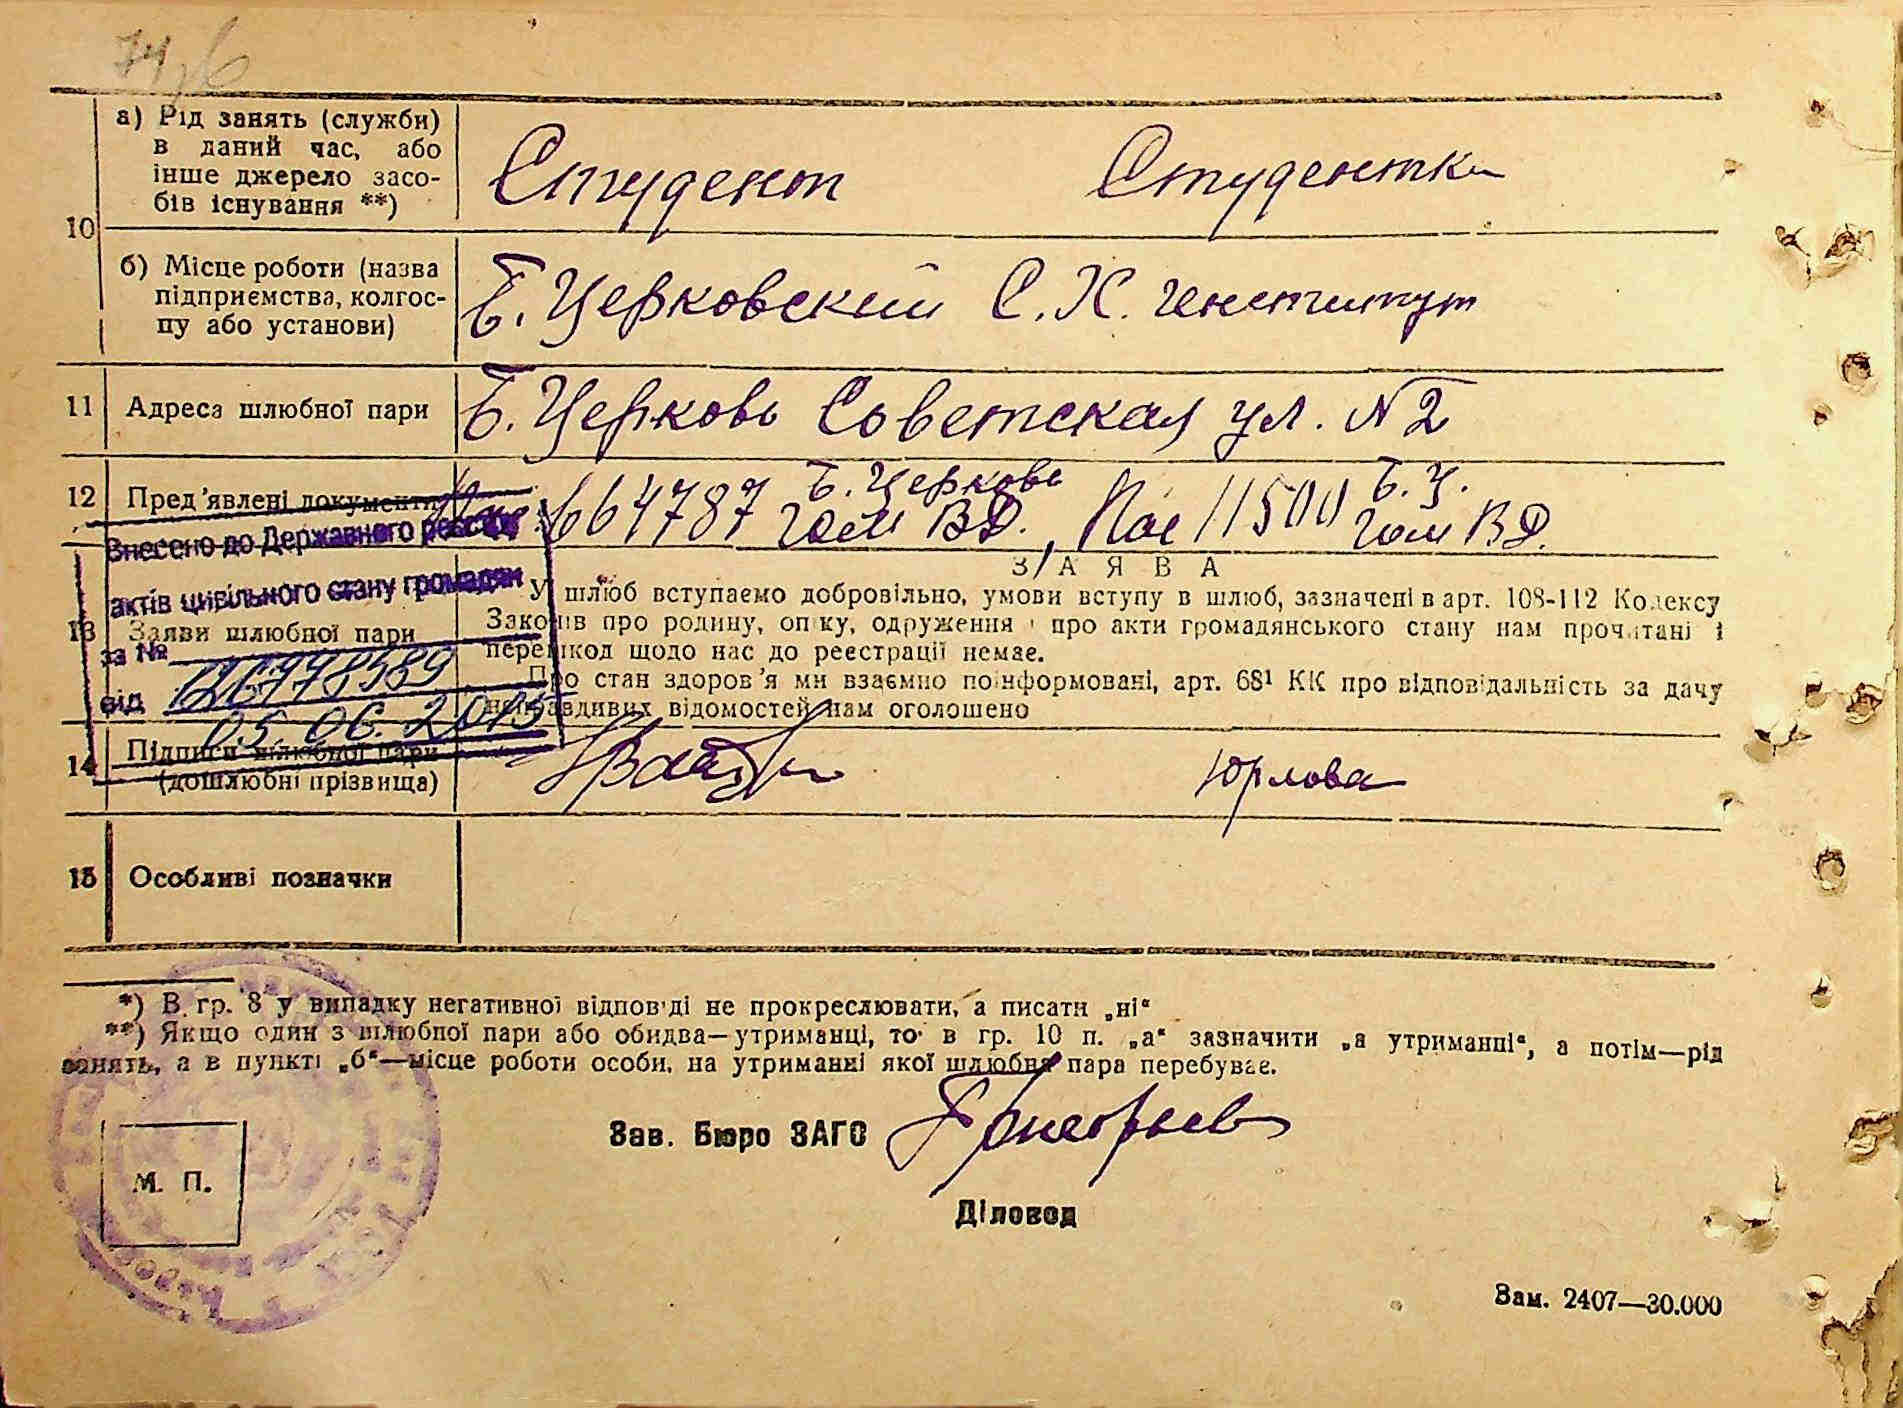 74
а) Рід занять (служби)
в даний час, або
інше джерело засо-
бів існування **)
Студент Студентка
10
б) Місце роботи (назва
підприємства, колгос-
пу або установи)
Б. Церковский С. Х. Институт
11 Адреса шлюбної пари Б. Церковь Советская ул. № 2
12 Пред'явлені документи 664787 Б. Церковь ВД., Пас 11500 Б. Ц. ВД.
Внесено до Державного реєстру
актів цивільного стану громадян
за № 126778589
від 05.06.2015
З А Я В А
13 Заяви шлюбної пари
У шлюб вступаємо добровільно, умови вступу в шлюб, зазначені в арт. 108-112 Кодексу
Законів про родину, опіку, одруження і про акти громадянського стану нам прочитані і
перешкод щодо нас до реєстрації немає.
Про стан здоров'я ми взаємно поінформовані, арт. 68¹ КК про відповідальність за дачу
неправдивих відомостей нам оголошено
14 Підписи шлюбної пари
(дошлюбні прізвища)
Юрлова
15 Особливі позначки
*) В гр. 8 у випадку негативної відповіді не прокреслювати, а писати „ні“
**) Якщо один з шлюбної пари або обидва—утриманці, то в гр. 10 п. „а“ зазначити „а утриманні“, а потім—рід
занять, а в пункті „б“—місце роботи особи, на утриманні якої шлюбна пара перебуває.
Зав. Бюро ЗАГС
Діловод
М. П.
Зам. 2407—30.000